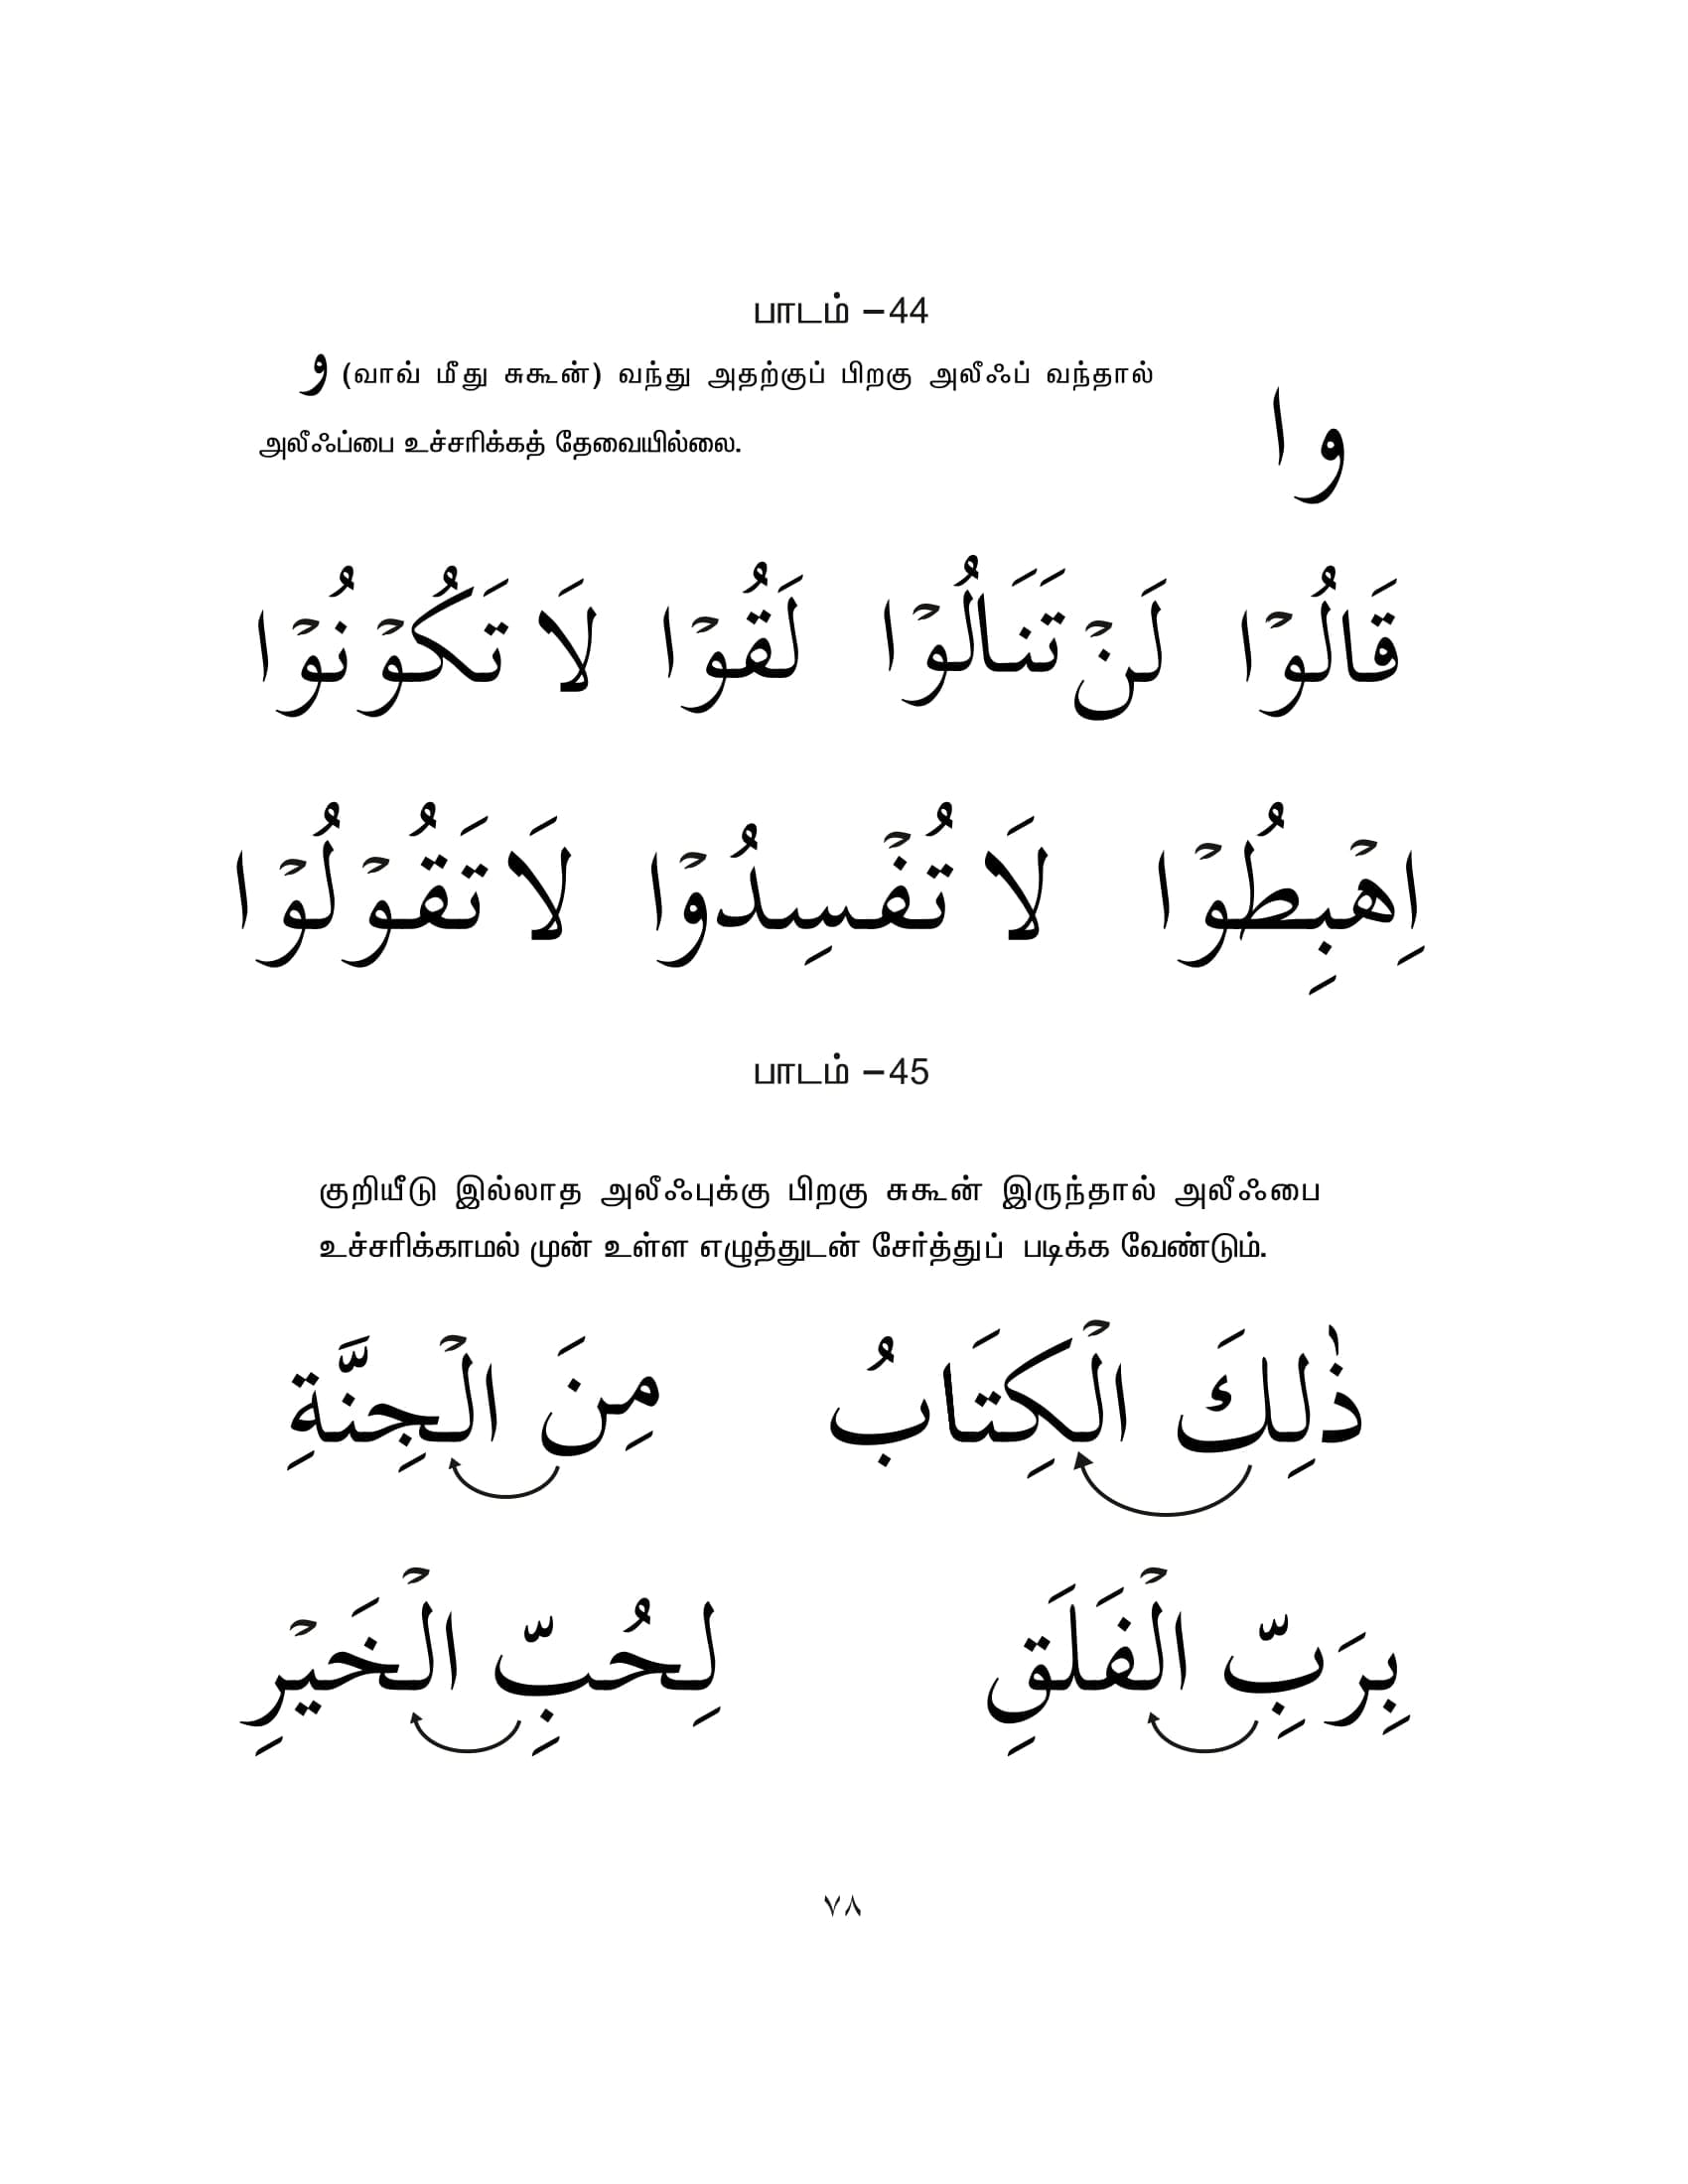 பாடம் –44
و (வாவ் மீது சுகூன்) வந்து அதற்குப் பிறகு அலீஃப் வந்தால்
وا
அலீஃப்பை உச்சரிக்கத் தேவையில்லை.
قَالُوْا لَنْ تَنَالُوْا لَقُوْا لَا تَكُوْنُوْا
اِهْبِطُوْا لَا تُفْسِدُوْا لَا تَقُوْلُوْا
பாடம் –45
குறியீடு இல்லாத அலீஃபுக்கு பிறகு சுகூன் இருந்தால் அலீஃபை
உச்சரிக்காமல் முன் உள்ள எழுத்துடன் சேர்த்துப் படிக்க வேண்டும்.
ذٰلِكَ الْكِتَابُ مِنَ الْجِنَّةِ
بِرَبِّ الْفَلَقِ لِحُبِّ الْخَيْرِ
٧٨